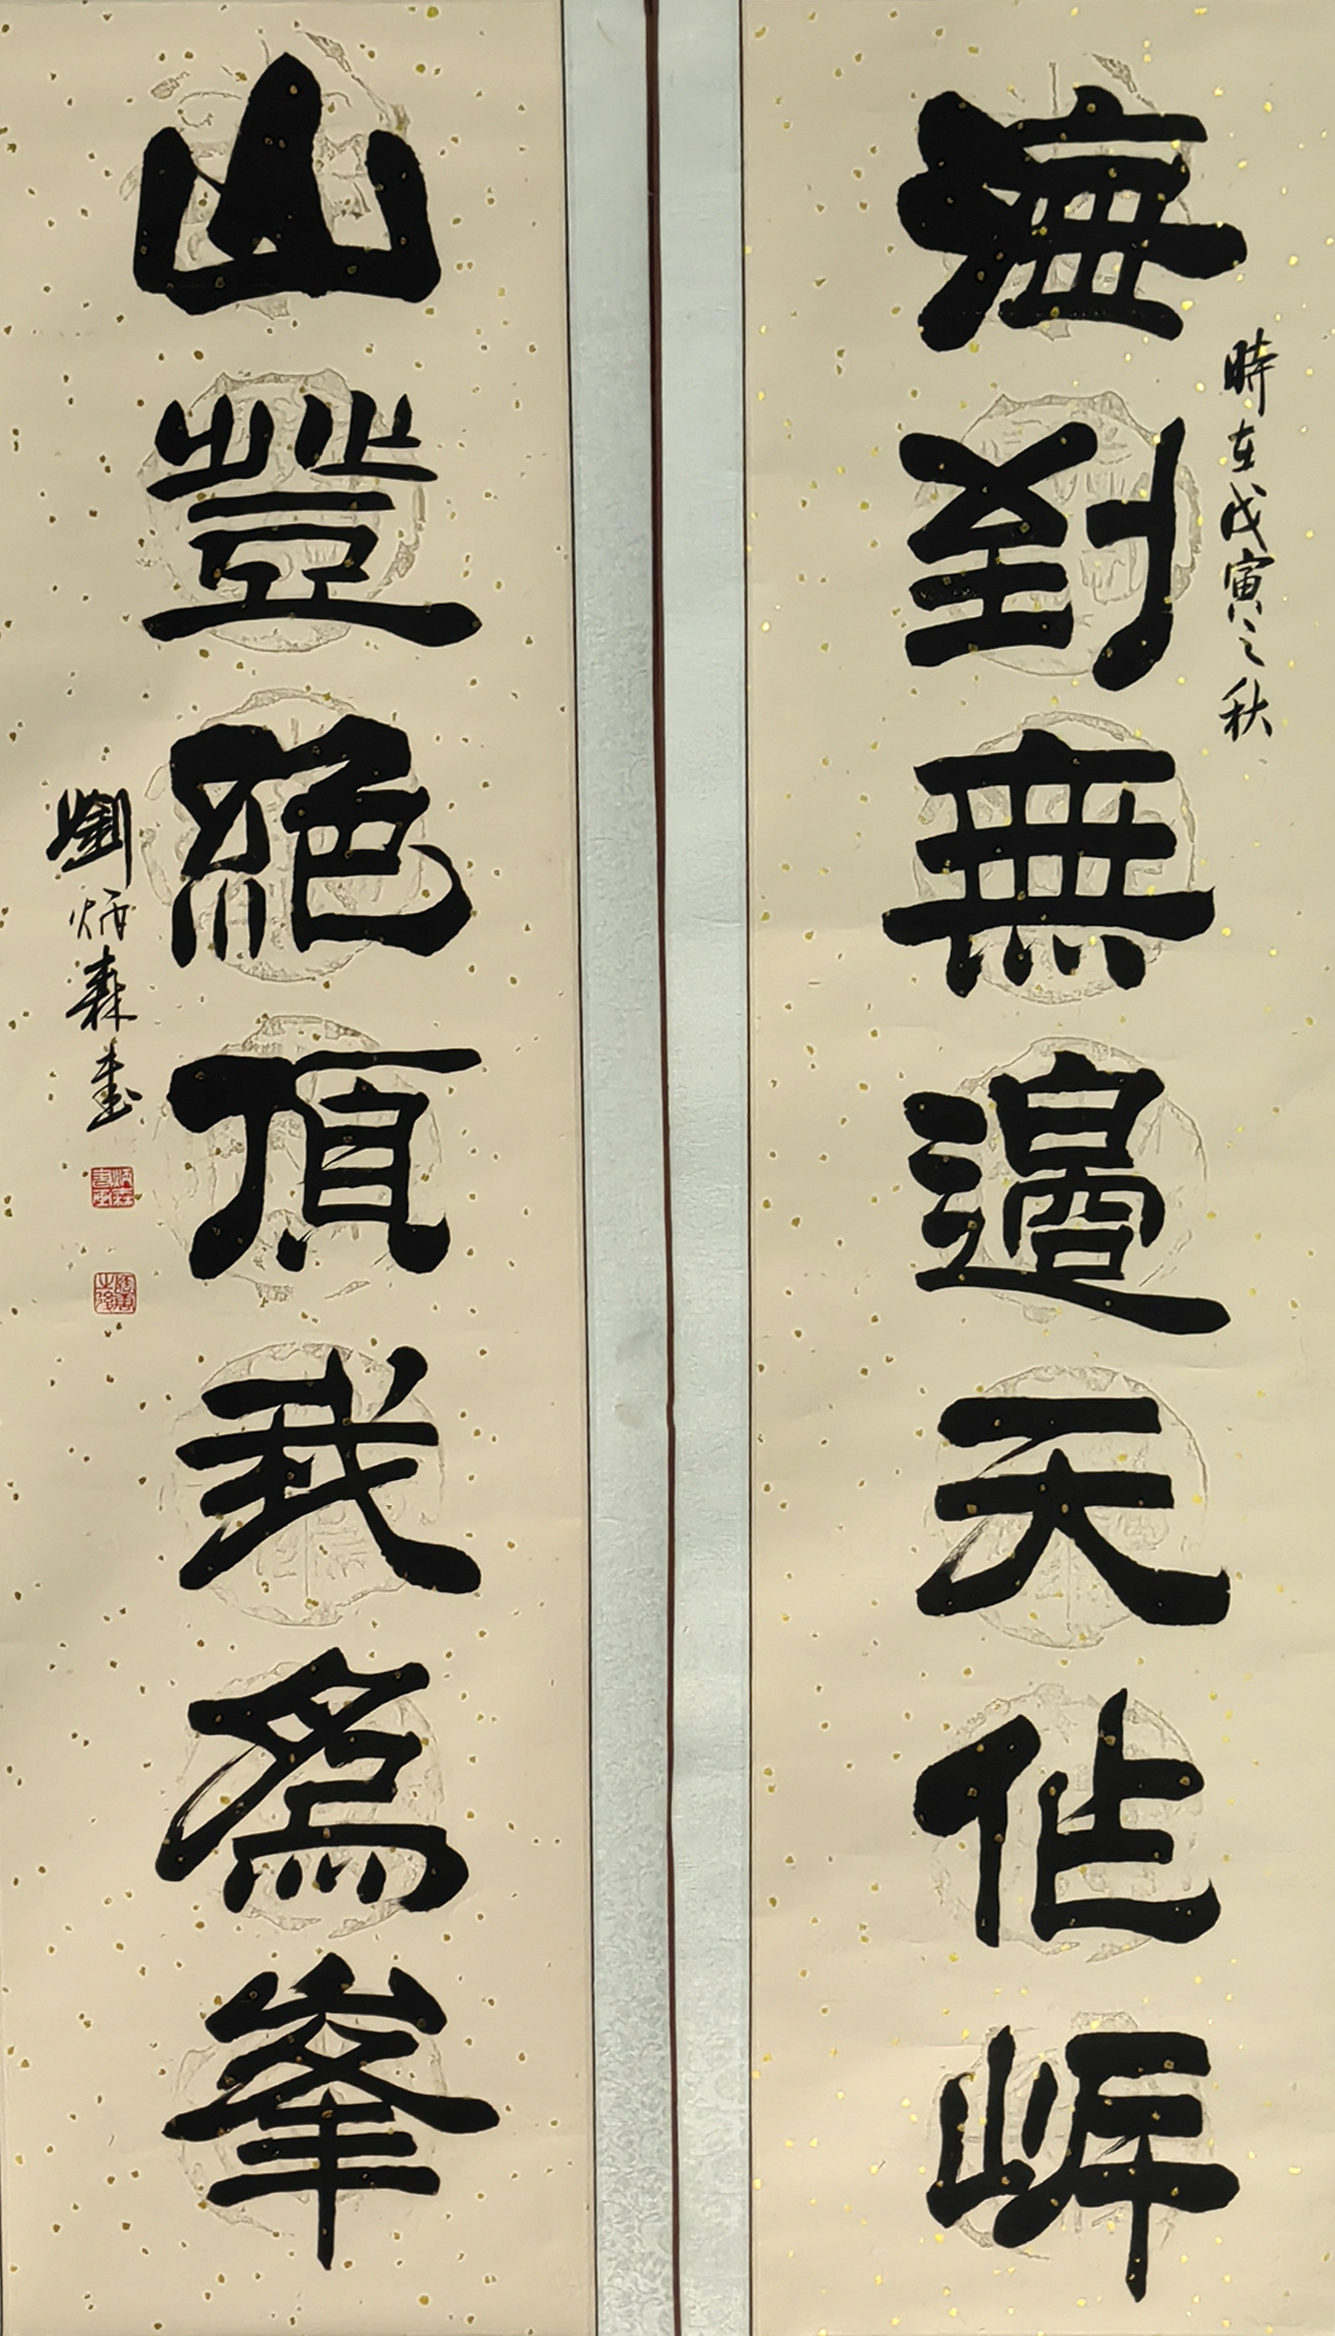 海到無邊天作岸
時在戊寅之秋
山登絕頂我為峯
劉炳森書